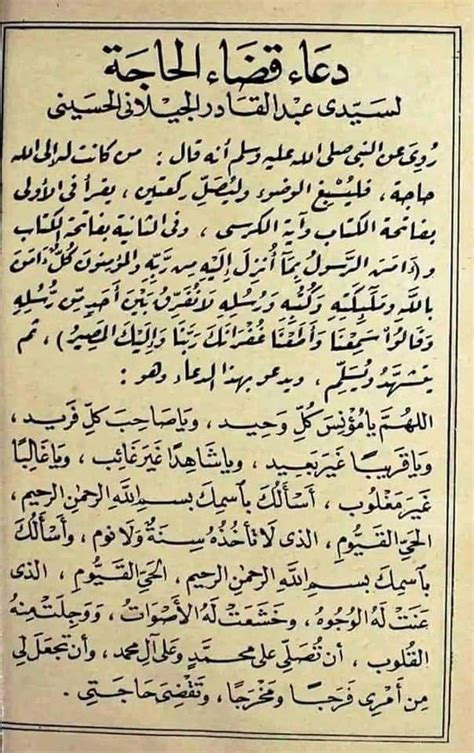 دعاء قضاء الحاجة
لسيدى عبد القادر الجيلانى الحسينى
رُوِىَ عن النبى صلى الله عليه وسلم أنه قال : من كانت له إلى الله
حاجة ، فليُسْبِغ الوضوء وليُصَلِّ ركعتين ، يقرأ فى الأولى
بفاتحة الكتاب وآية الكرسى ، وفى الثانية بفاتحة الكتاب
و(ءَامَنَ الرَّسولُ بِمَا أُنزِلَ إِلَيْهِ مِن رَّبِّهِ والمؤمنونَ كُلٌّ ءَامَنَ
بالله وَمَلَٰٓئِكَتِهِ وَكُتُبِهِ وَرُسُلِهِ لَا نُفَرِّقُ بَيْنَ أَحَدٍ مِّن رُّسُلِهِ
وَقَالُوا۟ سَمِعْنَا وَأَطَعْنَا غُفْرَانَكَ رَبَّنَا وَإِلَيْكَ الْمَصِيرُ) ، ثم
يتشَهَّدُ ويُسَلِّم ، ويدعو بهذا الدعاء وهو :
اللهُمَّ يا مُؤْنِسَ كُلِّ وَحِيد ، وَيَا صَاحِبَ كلِّ فَرِيد ،
وَيَا قَرِيبًا غَيْرَ بَعِيد ، وَيا شَاهِدًا غَيْرَ غَائِب ، وَيَا غَالِبًا
غَيرَ مَغْلُوب ، أَسْأَلُكَ بِٱسمِكَ بِسمِ اللهِ الرحمٰنِ الرحيم ،
الحَىِّ القَيُّومِ ، الذى لَا تَأخُذُهُ سِنَةٌ وَلَا نوم ، وأَسْأَلُكَ
بِٱسمِكَ بِسمِ اللهِ الرحمٰنِ الرحيم ، الحَىِّ القَيُّومِ ، الذى
عَنَتْ لَهُ الوُجُوهُ ، وخَشَعَتْ لَهُ الأَصْوَاتُ ، وَوَجِلَتْ مِنهُ
القُلوب ، أن تُصَلِّىَ عَلَى محمَّدٍ وعَلَى آلِ محمد ، وأن تَجعَلَ لِى
مِن أَمْرِى فَرَجًا وَمَخْرَجًا ، وَتَقْضِىَ حَاجَتِى .